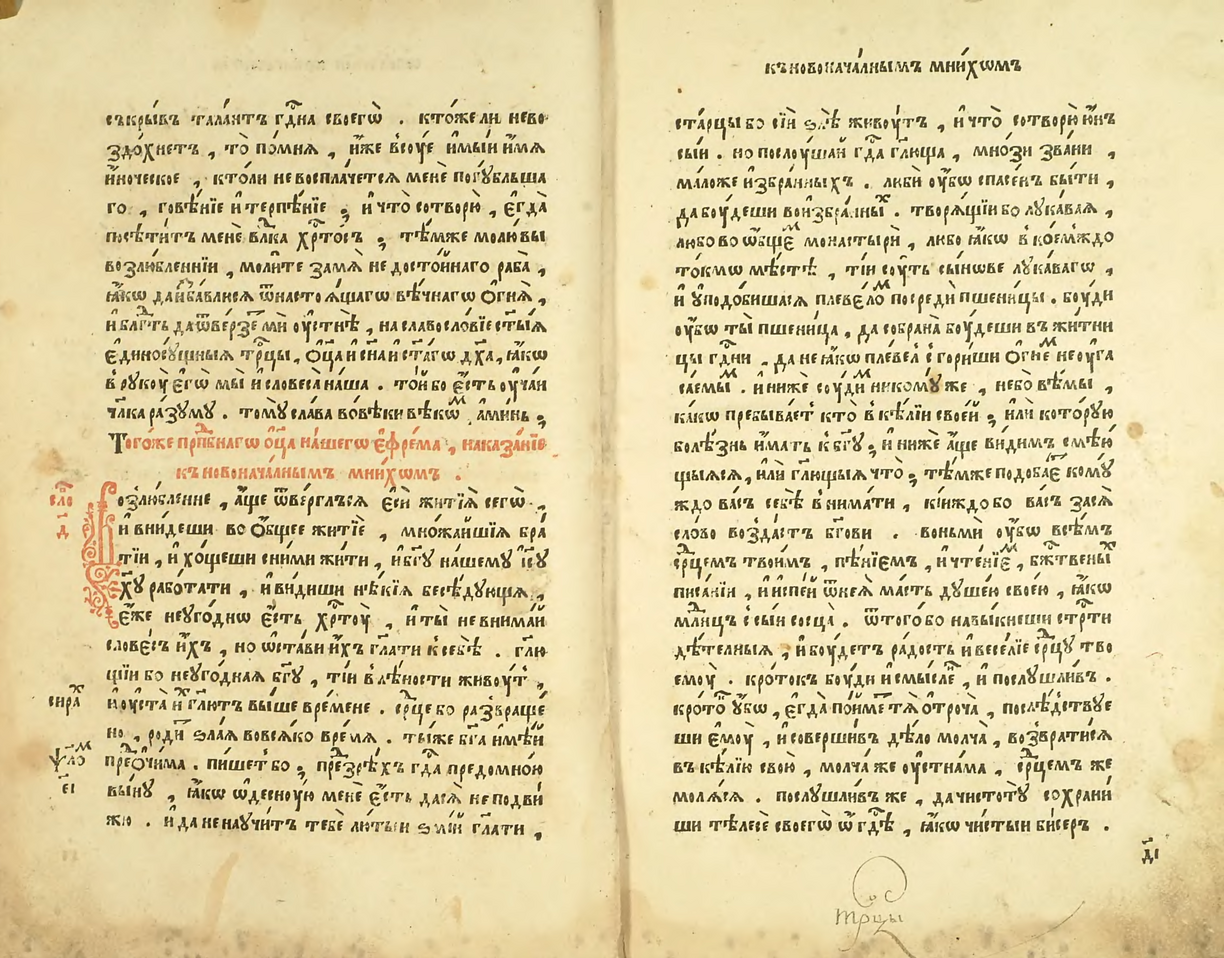 съкры́въ тала́нтъ гдⷭ҇на своегѡ̀ . кто́же ли нево
здо́хнетъ , то̀ по́мнѧ , и҆́же всꙋ́е имы́и и҆́мѧ
и҆́ноческое , кто́ли не воспла́четсѧ менѐ погꙋ́бльша
го , говѣ́нїе и҆ терпѣ́нїе ; и҆ что̀ сотворю̀ , є҆гда̀
посѣти́тъ менѐ влⷣка хрⷭ҇то́съ ; тѣ́мже молю̀ вы
возлю́бленнїи , моли́те замѧ̀ недосто́йнаго раба̀ ,
ꙗ҆́кѡ да и҆зба́влюсѧ ѿ настоѧ́щагѡ вѣ́чнагѡ ѻ҆гнѧ̀ ,
и҆ блгⷣть да ѿве́рзеⷮ мѝ оу҆стнѣ̀ , на славосло́вїе ст҃ы́ѧ
є҆диносꙋ́щныѧ трⷪ҇цы , ѻ҆ц҃а̀ и҆ сн҃а и҆ ст҃а́гѡ дх҃а , ꙗ҆́кѡ
в рꙋкоу̀ є҆гѡ̀ мы̀ и҆ словеса̀ на́ша . то́й бо є҆́сть оу҆ча́и
чл҃ка ра́зꙋмꙋ . томꙋ̀ сла́ва вовѣ́ки вѣкѡ́ⷨ , а҆ми́нь ;
Тогѡ́же прпⷣбнагѡ ѻ҆ц҃а̀ на́шегѡ є҆фре́ма , наказа́нїе
къ новонача́лнымъ мни́хѡмъ .
сло
д҃
Возлю́бленне , а҆́ще ѿве́рглъсѧ є҆сѝ житїѧ̀ сегѡ̀ ,
и҆ вни́деши во ѻ҆́бщее житїѐ , мно́жайшїѧ бра́
тїи , и҆ хо́щеши с ни́ми жи́ти , и҆ бг҃ꙋ на́шемꙋ і҆с꙳ꙋ
х҃ꙋ рабо́тати , и҆ ви́диши нѣ́кїѧ бесѣ́дꙋюща ,
є҆́же неꙋго́днѡ є҆́сть хрⷭ҇тоу̀ , и҆ ты̀ не внима́й
слове́съ и҆́хъ , но ѡ҆ста́ви и҆́хъ гл҃а́ти к себѣ̀ . гл҃ю́
щїи бо неꙋго́днаѧ бг҃ꙋ , ті́и в лѣ́ности живоу́тъ ,
сираⷯ
и҆ оу҆ста̀ иⷯ гл҃ютъ вы́ше вре́мене . срⷣце бо развраще́
но , родѝ ѕла́ѧ во всѧ́ко вре́мѧ . ты́же бг҃а имѣ́й
ѱаⷧ҇оⷨ
є҃і
пре́дочи́ма . пи́шет бо ; презрѣ́хъ гдⷭ҇а предомно́ю
вы́нꙋ , ꙗ҆́кѡ ѡ҆деснꙋ́ю менѐ є҆́сть да сѧ̀ не подви́
жꙋ . и҆ да не наꙋчи́тъ тебѐ лю́тыи ѕмі́й гл҃а́ти ,
къ новонача́лнымъ мни́хѡмъ
ста́рцы бо сі́и ѕлѣ̀ живоу́тъ , и҆ что̀ сотворю̀ ю҆́нъ
сы́и . но послоу́шай гдⷭ҇а гл҃юща , мно́зи зва́ни ,
ма́ло же и҆збра́нныхъ . люби́ оу҆́бѡ спасе́нъ бы́ти ,
да боу́деши во избра́нныⷯ . творѧ́щїи бо лꙋка́ваѧ ,
лю́бо во ѡ҆́бщеⷨ монастырѝ , лю́бо ꙗ҆́кѡ в кое́мждо
то́кмѡ мѣ́стѣ , ті́и соу́ть сы́нѡве лꙋка́вагѡ ,
и҆ ᲂуподо́бишасѧ плеве́лоⷨ посредѝ пшени́цы . боу́ди
оу҆́бѡ ты̀ пшени́ца , да собрана̀ боу́деши в жи́тни
цы гдⷭ҇ни . да не ꙗ҆́кѡ плеве́л сгори́ши ѻ҆гне́ⷨ неꙋга
са́емыⷨ . и҆ ни́же соу́диⷨ никомꙋ́же , не бо вѣ́мы ,
ка́кѡ пребыва́етъ кто̀ в кѣ́лїи свое́й ; и҆лѝ котόрую
болѣ́знь и҆́мать к бг҃ꙋ ; и҆ ни́же а҆́ще ви́димъ смѣю́
щыѧсѧ , и҆лѝ гл҃ющыѧ что̀ ; тѣ́мже подоба́еⷮ комꙋ́
ждо ва́съ себѣ̀ внима́ти , кі́иждо бо ва́съ засѧ̀
сло́во возда́стъ бг҃ови . воньмѝ оу҆́бѡ всѣ́мъ
срⷣцемъ твои́мъ , пѣ́нїемъ , и҆ чте́нїеⷨ , бж҃твены́ⷯ
писа́нїи , и҆ испе́й ѿ неѧ̀ ма́сть дꙋше́ю свое́ю , ꙗ҆́кѡ
млⷣнцъ сы́и сосца̀ . ѿ того́ бо навы́кнеши стрⷭ҇ти
дѣ́телныѧ , и҆ боу́детъ ра́дость и҆ весе́лїе срⷣцꙋ тво
емоу̀ . кро́токъ боу́ди и҆ смы́слеⷩ , и҆ послꙋшли́въ .
кро́тоⷦ ᲂу҆́бѡ , є҆гда̀ по́йме тѧ̀ ѻ҆троча̀ , послѣ́дствꙋе
ши є҆моу̀ , и҆ соверши́въ дѣ́ло мо́лча , возврати́сѧ
въ кѣ́лїю свою̀ , мо́лча же оу҆стна́ма , срⷣцемъ же
молѧ́сѧ . послꙋшли́въ же , да чистотꙋ̀ сохрани́
ши тѣ́лесе своегѡ̀ ѡ҆ гдⷭ҇ѣ , ꙗ҆́кѡ чи́стыи би́серъ .
д҃і
трⷪ҇цы